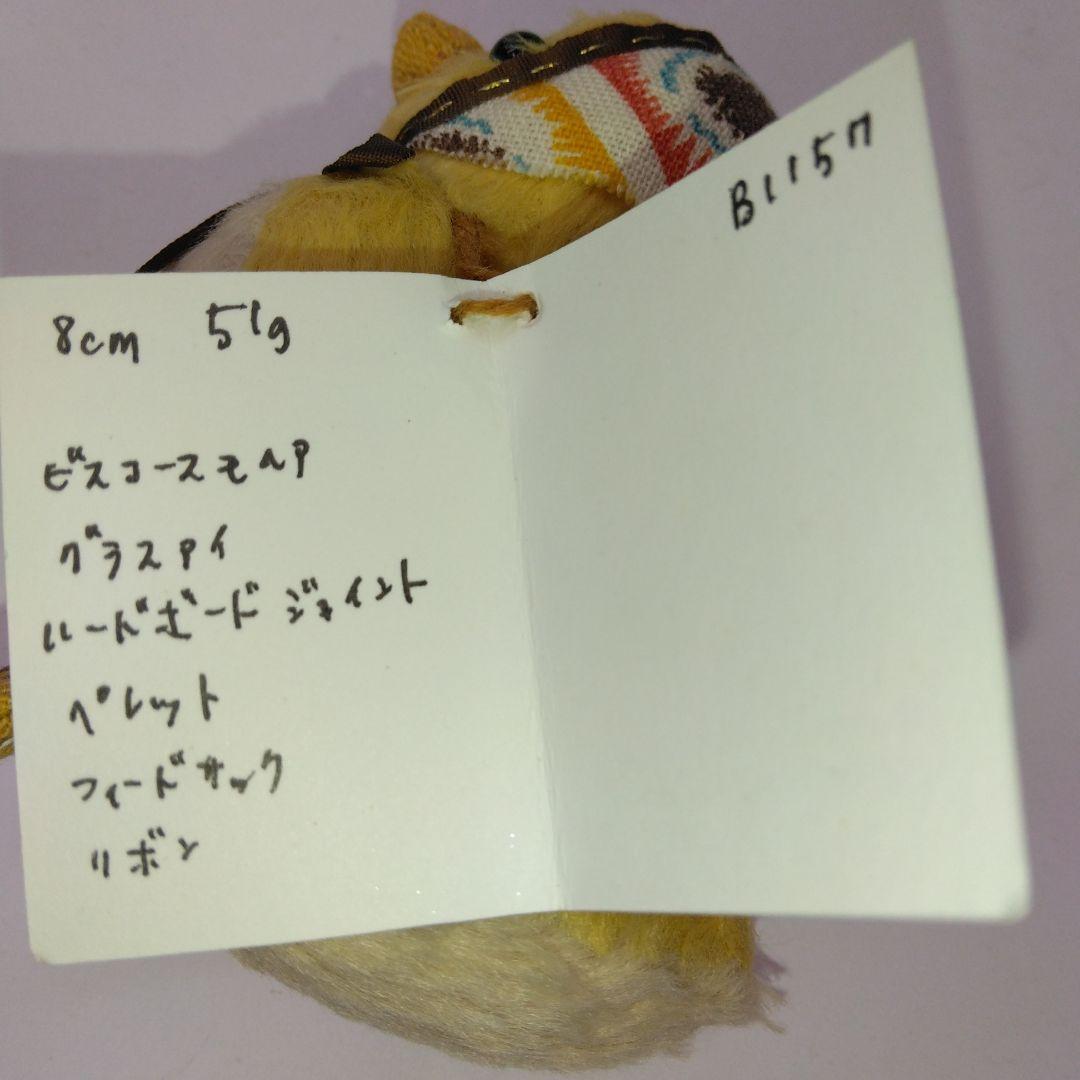 8cm 51g
ビスコースモヘア
グラスアイ
ハードボードジョイント
ペレット
フィードサック
リボン
B1157